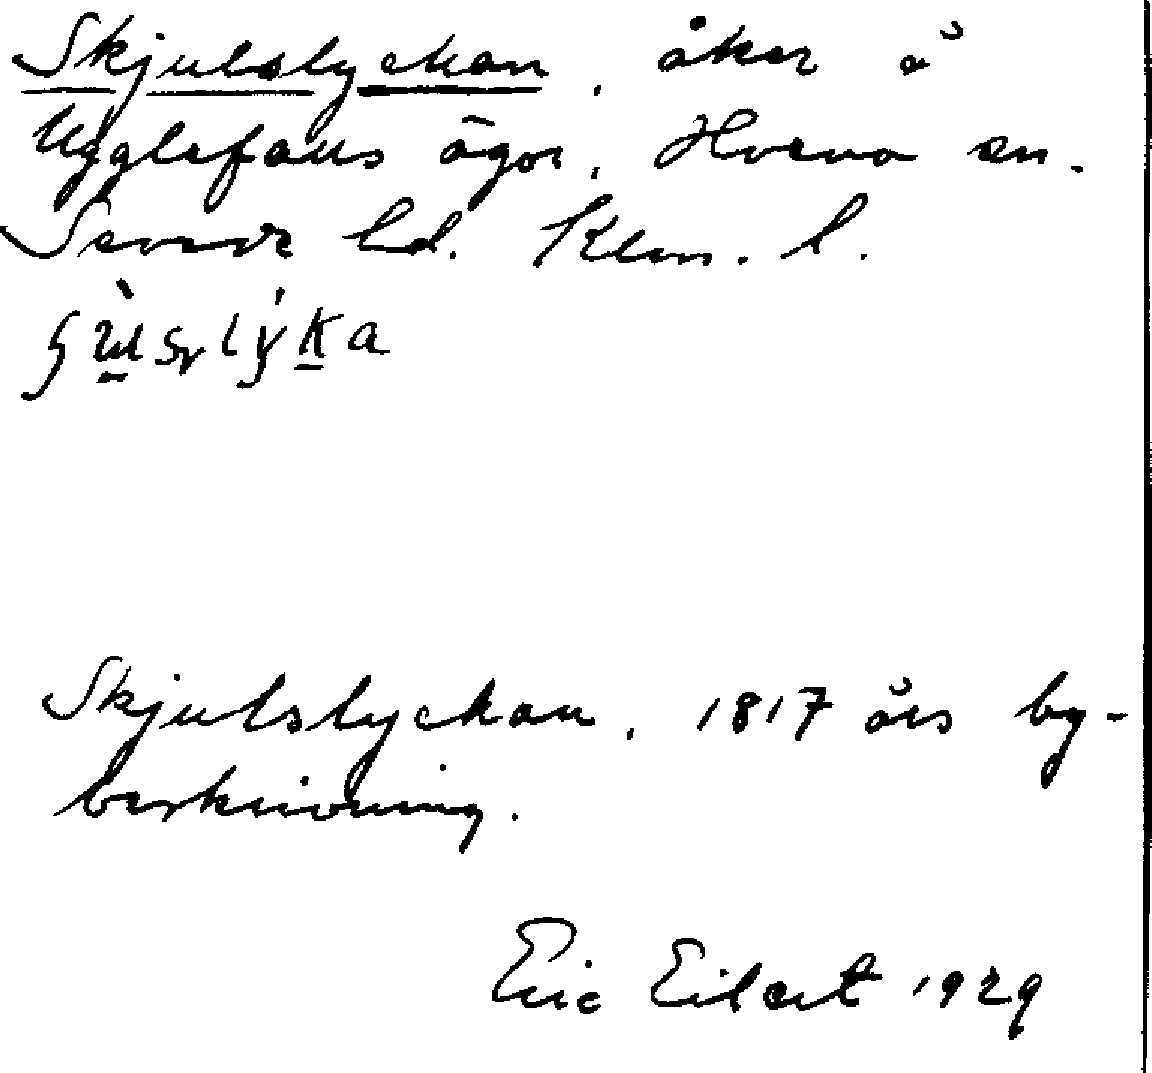 Skjulslyckan, åker å
Ugglefalls ägor, Hvena sn.
Sevede hd. Klm. l.
Skjulslyckan, 1817 års by-
beskrivning.
Eric Eilert 1929